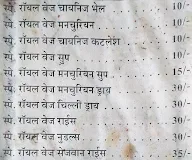 स्पे. रॉयल वेज चायनिज भेल 10/-
स्पे. रॉयल वेज मनचुरियन 10/-
स्पे. रॉयल वेज चायनिज कटलेश 10/-
स्पे. रॉयल वेज सुप 10/-
स्पे. रॉयल वेज मनचुरियन सुप 15/-
स्पे. रॉयल वेज मनचुरियन ड्राय 30/-
स्पे. रॉयल वेज चिल्ली ड्राय 30/-
स्पे. रॉयल वेज राईस 30/-
स्पे. रॉयल वेज नुडल्स 30/-
स्पे. रॉयल वेज सेजवान राईस 35/-